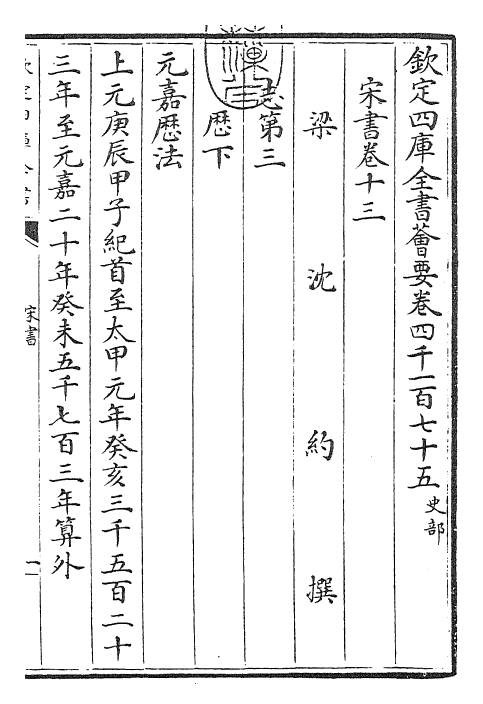 欽定四庫全書薈要卷四千一百七十五 史部
宋書卷十三
梁沈約撰
志第三
歴下
元嘉歴法
上元庚辰甲子紀首至太甲元年癸亥三千五百二十
三年至元嘉二十年癸未五千七百三年算外
宋書